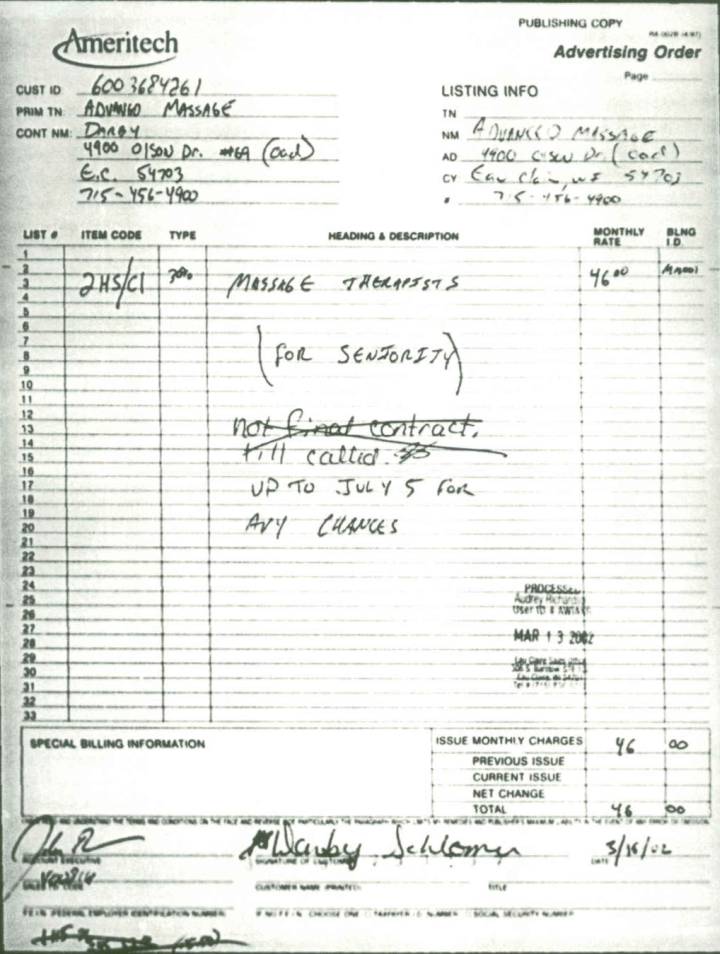 PUBLISHING COPY
Ameritech
Advertising Order
Page
CUST ID 6003684261
LISTING INFO
PRIM TN: ADVANCD MASSAGE
TN
CONT NM: DARBY
NM ADVANCED MASSAGE
4900 OlSON Dr. #69 (Oad)
AD 4900 OlSON Dr. (Oad)
E.C. 54703
CY Eau Claire, WI 54703
715-456-4900
# 715-456-4900
LIST # ITEM CODE TYPE HEADING & DESCRIPTION MONTHLY RATE BLNG I.D.
1
2
3 2HS/Cl 30% MASSAGE THERAPISTS 46 00
4
5
6
7
8 (FOR SENIORITY)
9
10
11
12
13 not final contract,
14
15 till called.
16
17 UP TO JULY 5 FOR
18
19
20 ANY CHANGES
21
22
23
24 PROCESSED
25 Audrey
26 User ID #
27 MAR 13 2002
28
29
30
31
32
33
SPECIAL BILLING INFORMATION
ISSUE MONTHLY CHARGES 46 00
PREVIOUS ISSUE
CURRENT ISSUE
NET CHANGE
TOTAL 46 00
ACCOUNT EXECUTIVE
SIGNATURE OF CUSTOMER
DATE
CUSTOMER NAME (PRINTED) TITLE
F.E.I.N. (FEDERAL EMPLOYER IDENTIFICATION NUMBER)
IF NO F.E.I.N. CHOOSE ONE TAXPAYER I.D. NUMBER SOCIAL SECURITY NUMBER